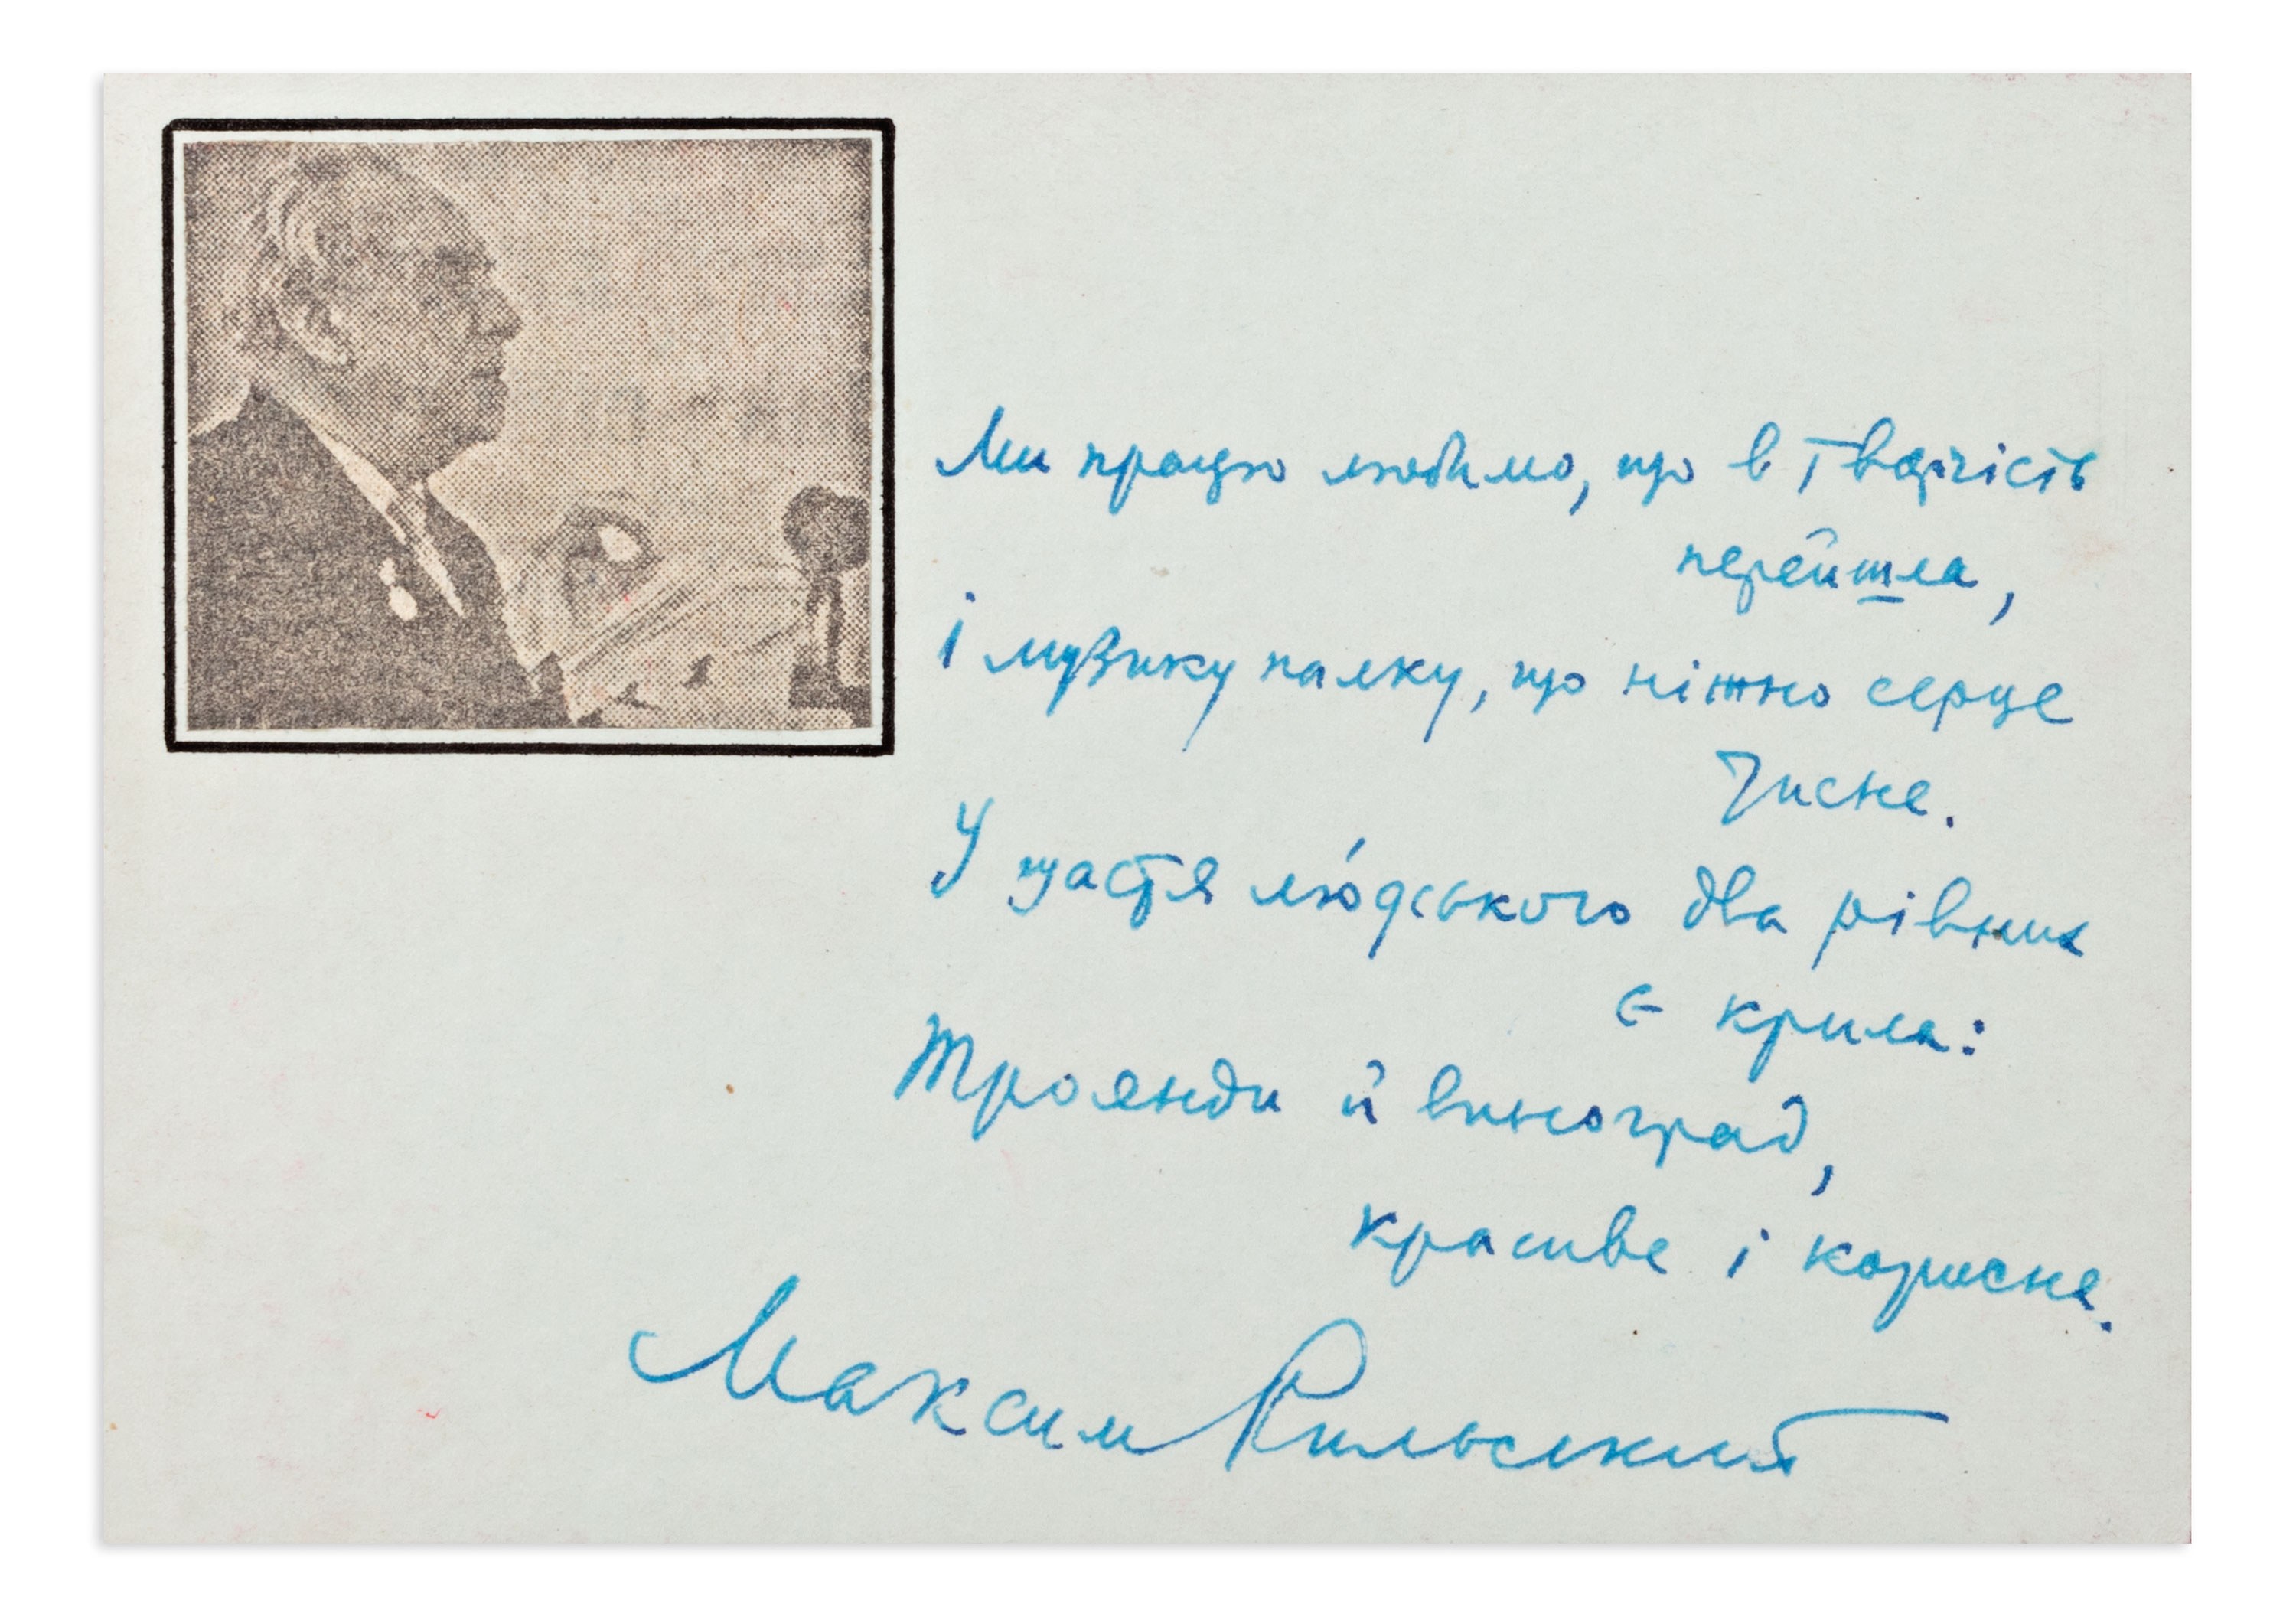 Ми працю любимо, що в творчість
перейшла,
І музику палку, що ніжно серце
тисне.
У щастя лю́дського два рівних
є крила:
Троянди й виноград,
красиве і корисне.
Максим Рильський